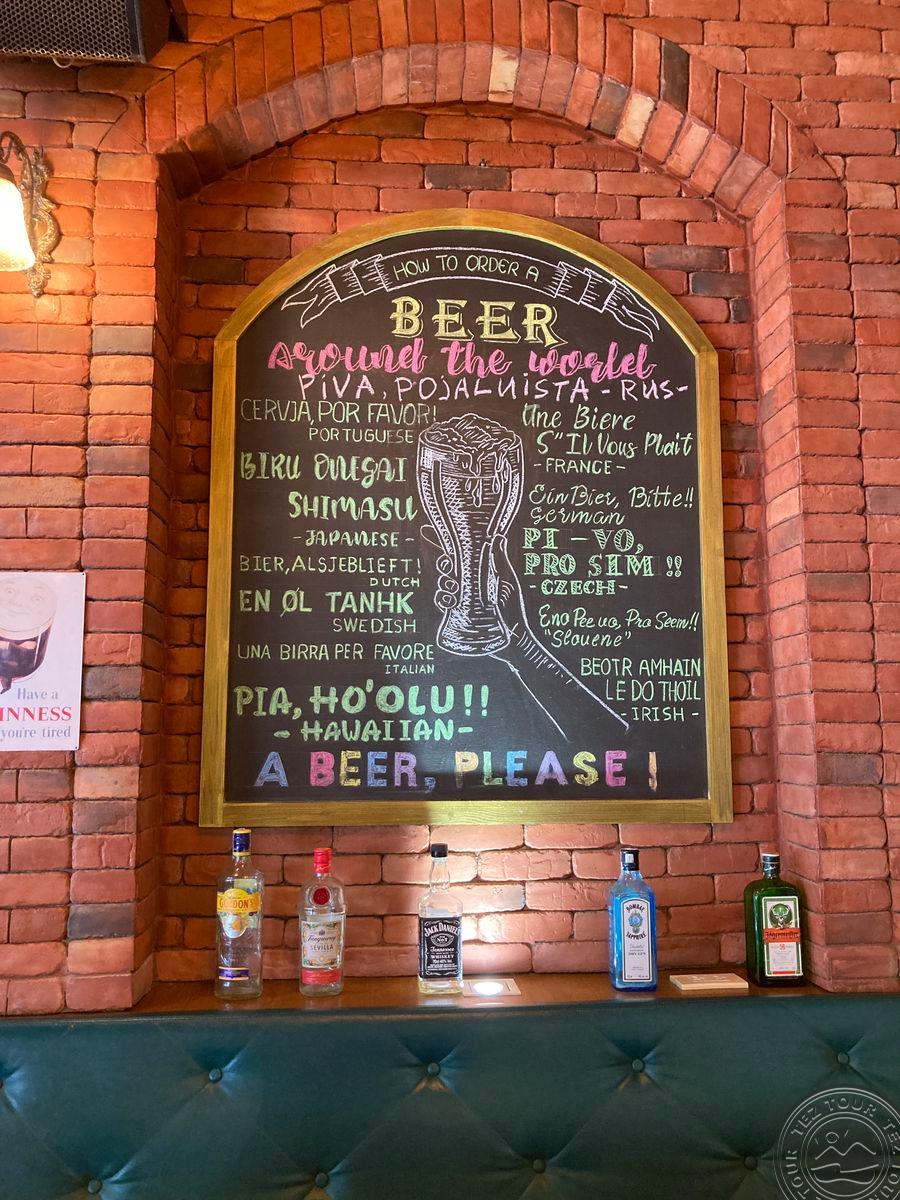 HOW TO ORDER A
BEER
around the world
PiVA, POJALUISTA - RUS-
CERVJA, POR FAVOR!
PORTUGUESE
BIRU ONEGAI
SHIMASU
- JAPANESE -
BIER, ALSJEBLIEFT!
DUTCH
EN ØL TANHK
SWEDISH
UNA BIRRA PER FAVORE
ITALIAN
PIA, HO'OLU!!
- HAWAIIAN -
Une Biere
S"Il Vous Plait
- FRANCE -
Ein Bier, Bitte!!
German
PI - VO,
PRO SIM !!
- CZECH -
Eno Pee vo, Pro Seem!!
"Slovene"
BEOTR AMHAIN
LE DO THOIL
- IRISH -
A BEER, PLEASE!
Have a
INNESS
you're tired
GORDON'S
Tanqueray
SEVILLA
JACK DANIEL'S
Tennessee
WHISKEY
BOMBAY
SAPPHIRE
DRY GIN
Jägermeister
TEZ TOUR